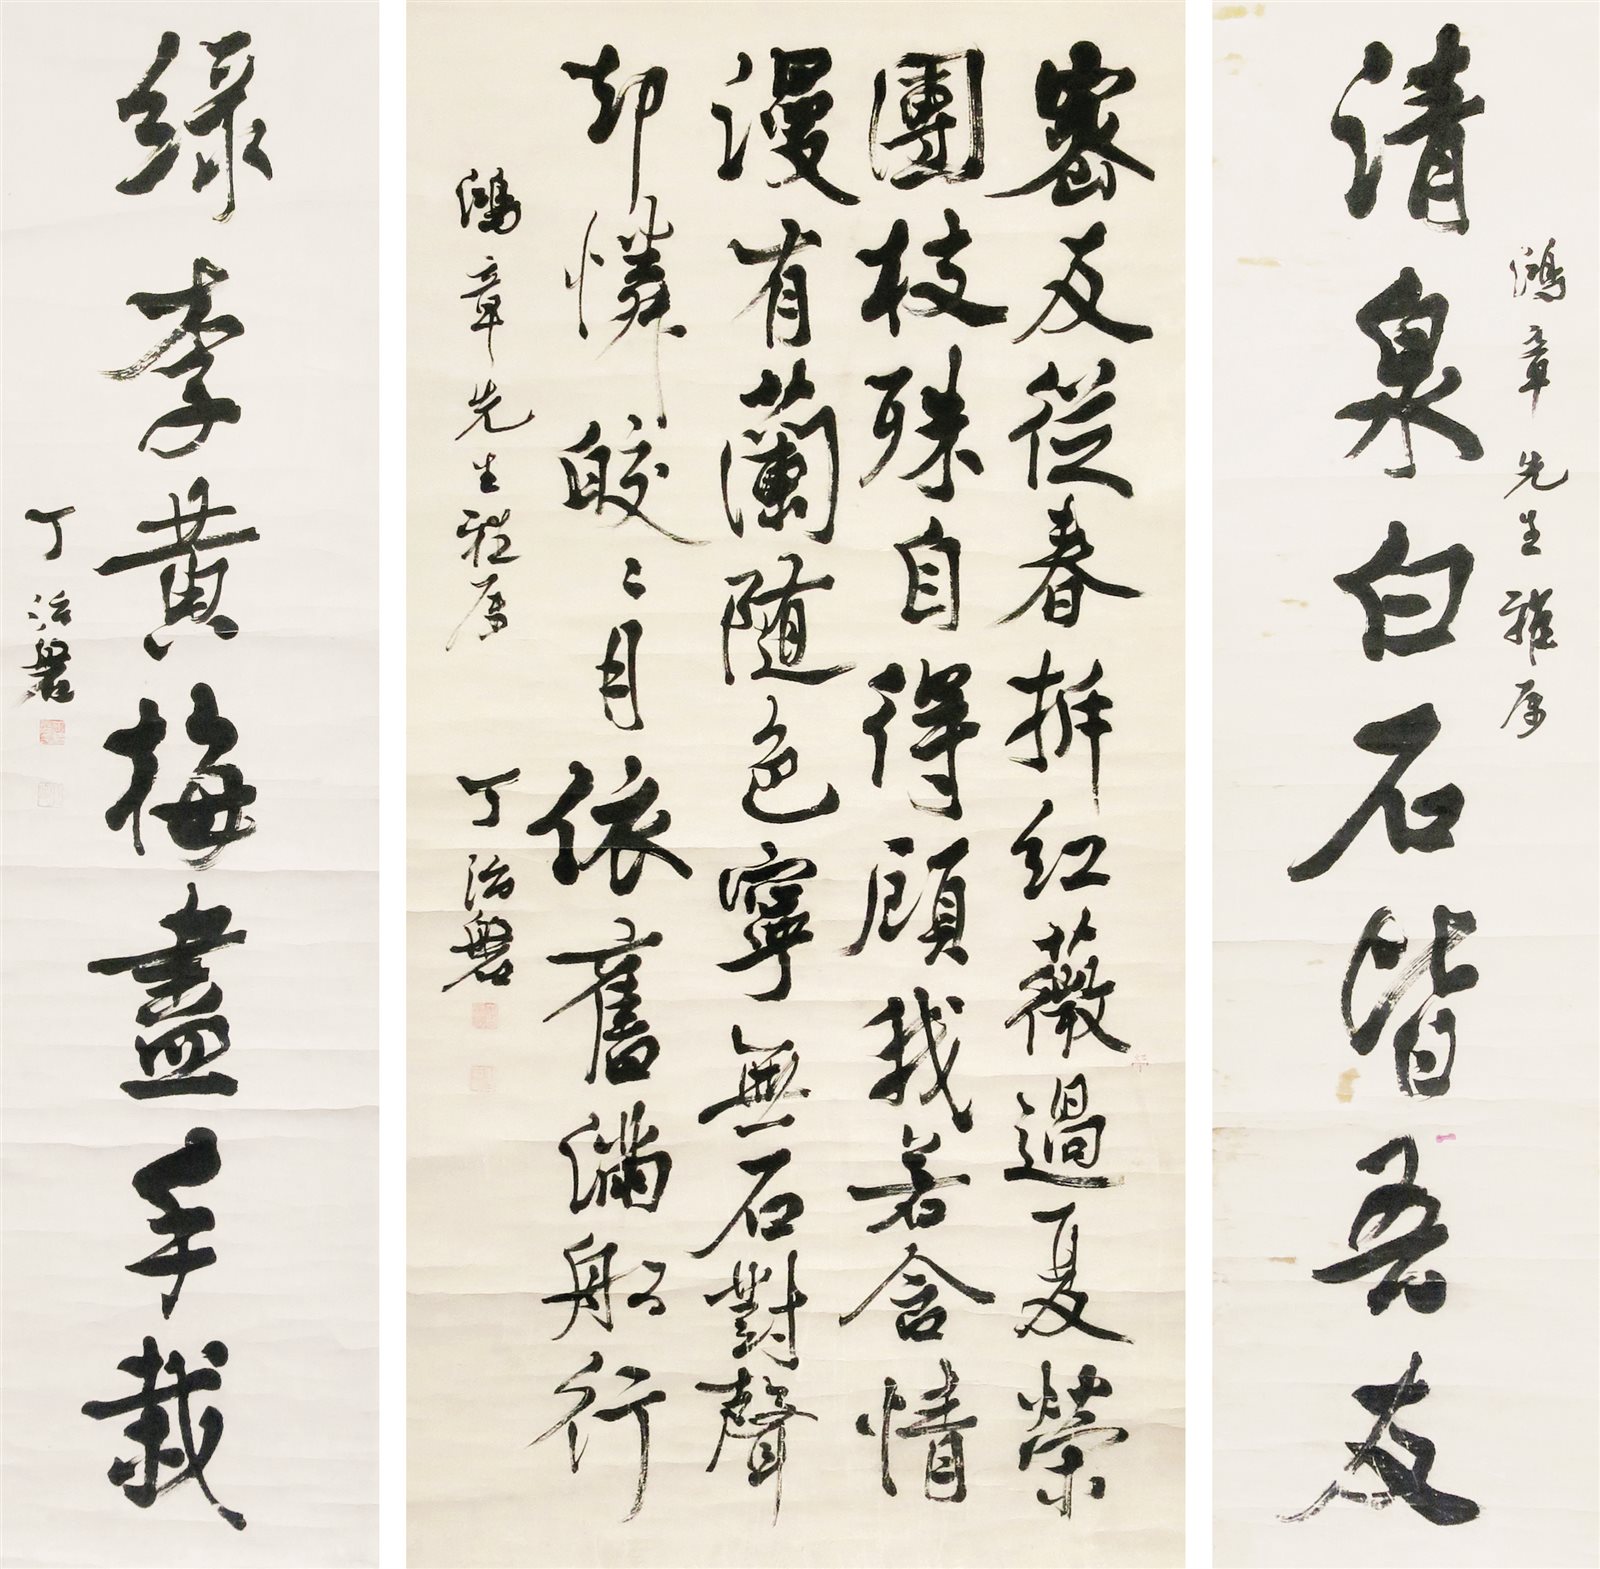 鴻章先生雅属
清泉白石皆吾友
密友從春拆紅薇過夏榮
團枝殊自得顧我若含情
漫有蘭隨色寧無石對聲
却憐皎々月依舊滿船行
鴻章先生雅属 丁治磐
綠李黃梅盡手栽
丁治磐